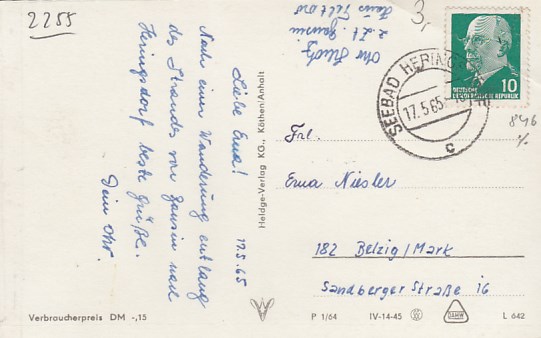 2255
17.5.65
Liebe Erna!
Nach einer Wanderung entlang
des Strandes von Bansin nach
Heringsdorf beste Grüße.
Dein Ohr.
z. Zt. Bansin
Haus Seltord
Heldge-Verlag KG., Köthen/Anhalt
3,-
10
DEUTSCHE
DEMOKRATISCHE REPUBLIK
SEEBAD HERINGSDORF
17.5.65
c
846
Frl.
Erna Niesler
182 Belzig/Mark
Sandberger Straße 16
Verbraucherpreis DM -,15
P 1/64 IV-14-45 DAMW L 642